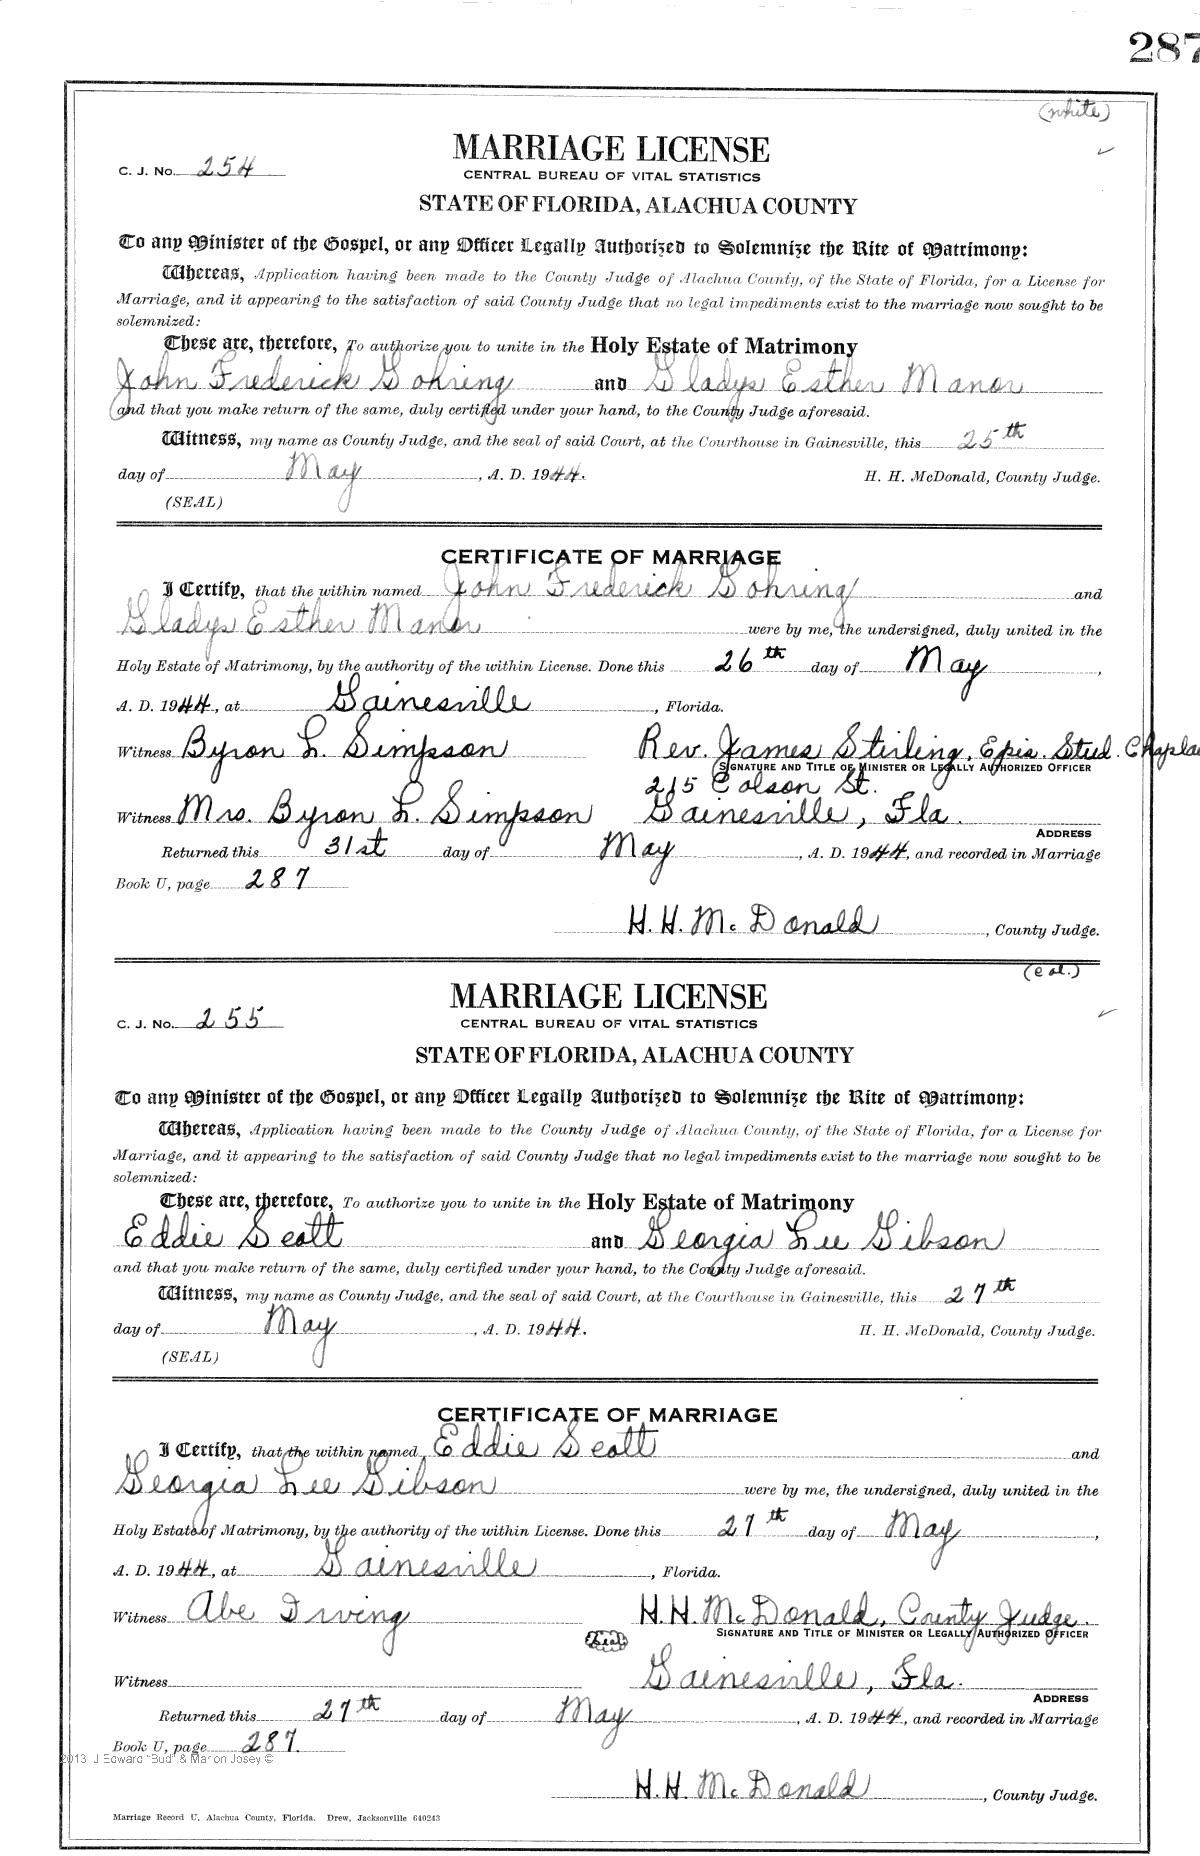 287
(white)
MARRIAGE LICENSE
C. J. No. 254
CENTRAL BUREAU OF VITAL STATISTICS
STATE OF FLORIDA, ALACHUA COUNTY
To any Minister of the Gospel, or any Officer Legally Authorized to Solemnize the Rite of Matrimony:
Whereas, Application having been made to the County Judge of Alachua County, of the State of Florida, for a License for
Marriage, and it appearing to the satisfaction of said County Judge that no legal impediments exist to the marriage now sought to be
solemnized:
These are, therefore, To authorize you to unite in the Holy Estate of Matrimony
John Frederick Gohring and Gladys Esther Manor
and that you make return of the same, duly certified under your hand, to the County Judge aforesaid.
Witness, my name as County Judge, and the seal of said Court, at the Courthouse in Gainesville, this 25th
day of May, A. D. 1944. H. H. McDonald, County Judge.
(SEAL)
CERTIFICATE OF MARRIAGE
I Certify, that the within named John Frederick Gohring and
Gladys Esther Manor were by me, the undersigned, duly united in the
Holy Estate of Matrimony, by the authority of the within License. Done this 26th day of May,
A. D. 1944, at Gainesville, Florida.
Witness Byron L. Simpson Rev. James Stirling, Epis. Stud. Chaplain
SIGNATURE AND TITLE OF MINISTER OR LEGALLY AUTHORIZED OFFICER
215 Colson St.
Witness Mrs. Byron L. Simpson Gainesville, Fla.
ADDRESS
Returned this 31st day of May, A. D. 1944, and recorded in Marriage
Book U, page 287
H. H. McDonald, County Judge.
(col.)
MARRIAGE LICENSE
C. J. No. 255
CENTRAL BUREAU OF VITAL STATISTICS
STATE OF FLORIDA, ALACHUA COUNTY
To any Minister of the Gospel, or any Officer Legally Authorized to Solemnize the Rite of Matrimony:
Whereas, Application having been made to the County Judge of Alachua County, of the State of Florida, for a License for
Marriage, and it appearing to the satisfaction of said County Judge that no legal impediments exist to the marriage now sought to be
solemnized:
These are, therefore, To authorize you to unite in the Holy Estate of Matrimony
Eddie Scott and Georgia Lee Gibson
and that you make return of the same, duly certified under your hand, to the County Judge aforesaid.
Witness, my name as County Judge, and the seal of said Court, at the Courthouse in Gainesville, this 27th
day of May, A. D. 1944. H. H. McDonald, County Judge.
(SEAL)
CERTIFICATE OF MARRIAGE
I Certify, that the within named Eddie Scott and
Georgia Lee Gibson were by me, the undersigned, duly united in the
Holy Estate of Matrimony, by the authority of the within License. Done this 27th day of May,
A. D. 1944, at Gainesville, Florida.
Witness Abe Irving H. H. McDonald, County Judge.
SIGNATURE AND TITLE OF MINISTER OR LEGALLY AUTHORIZED OFFICER
(Seal)
Witness Gainesville, Fla.
ADDRESS
Returned this 27th day of May, A. D. 1944, and recorded in Marriage
Book U, page 287.
2013 J Edward "Bud" & Marion Josey ©
H. H. McDonald, County Judge.
Marriage Record U, Alachua County, Florida. Drew, Jacksonville 640243